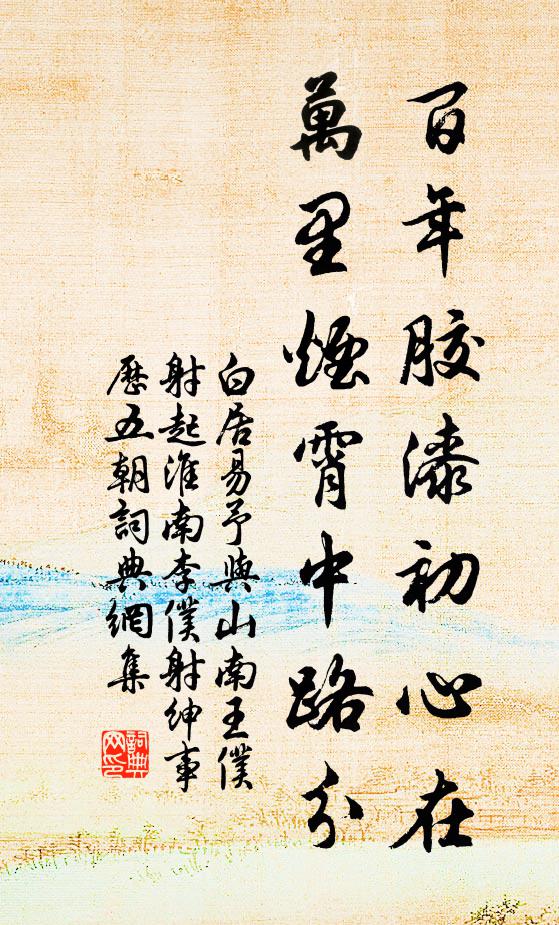 百年膠漆初心在
萬里煙霄中路分
白居易予與山南王僕
射起淮南李僕射紳事
歷五朝詞典網集
詞典
网印